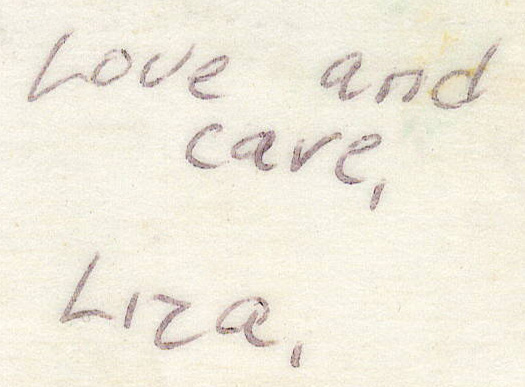 Love and
care,
Liza,